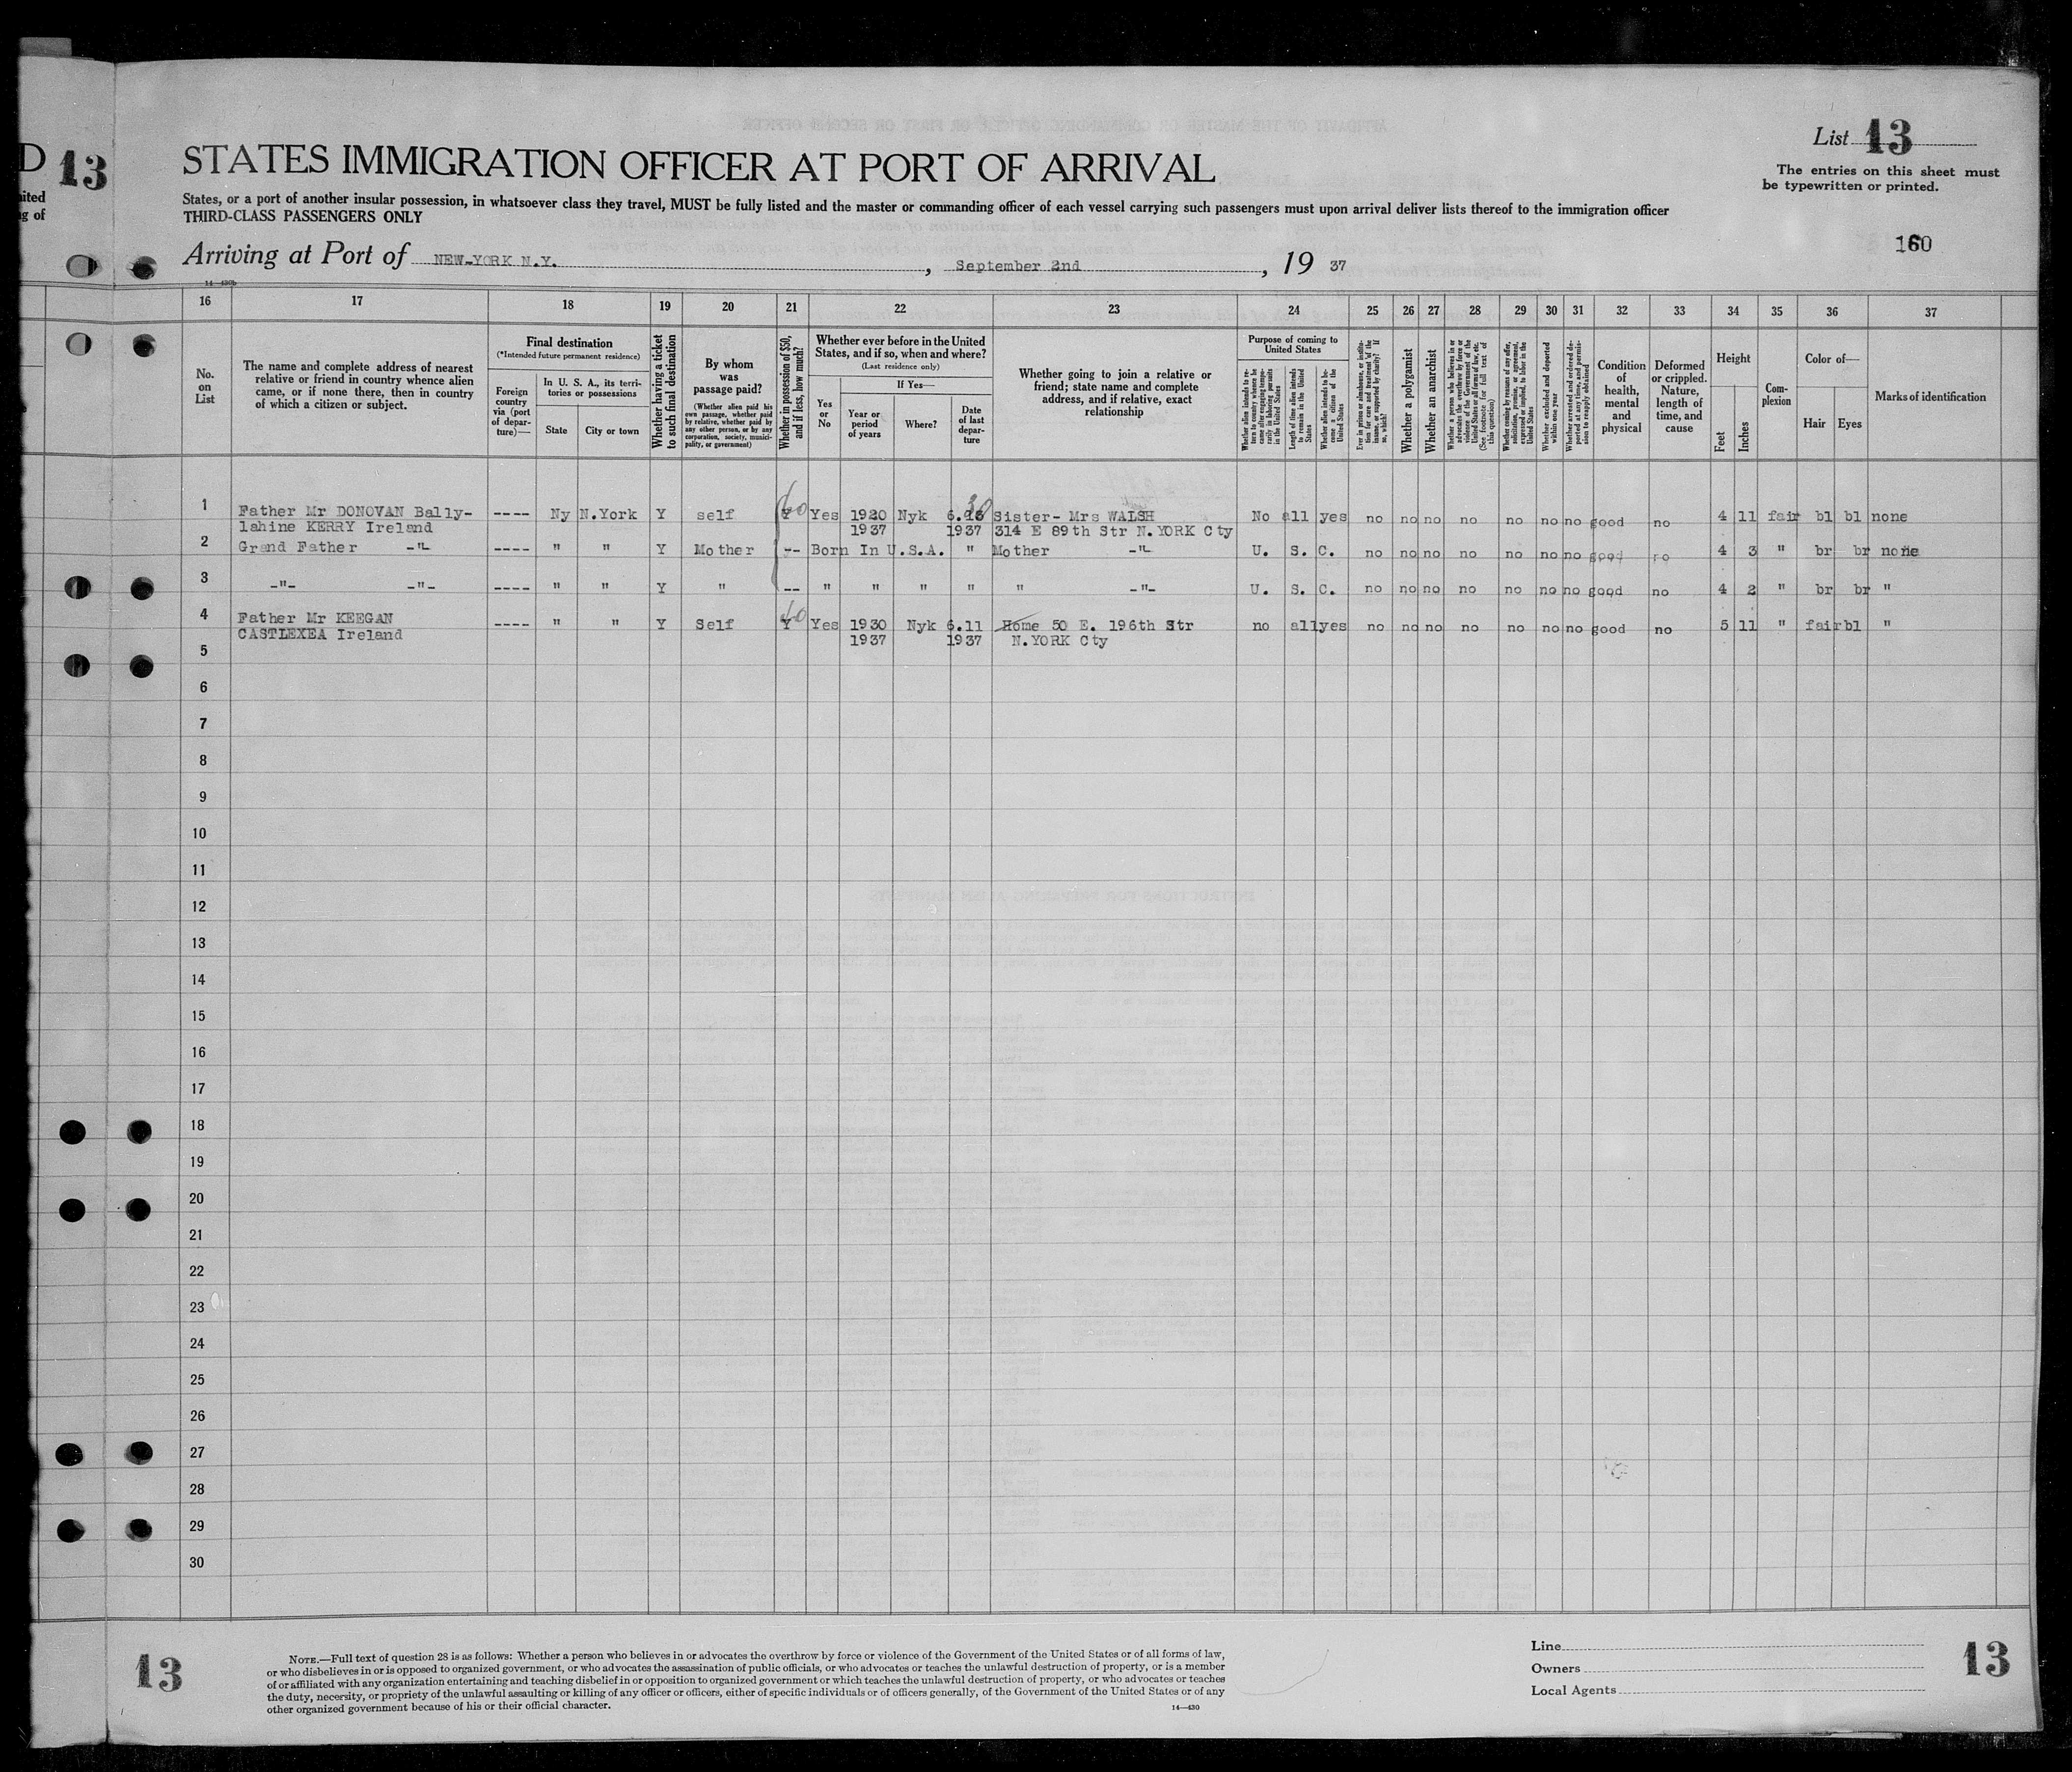 D 13
ited
g of
List 13
The entries on this sheet must
be typewritten or printed.
160
STATES IMMIGRATION OFFICER AT PORT OF ARRIVAL
States, or a part of another insular possession, in whatsoever class they travel, MUST be fully listed and the master or commanding officer of each vessel carrying such passengers must upon arrival deliver lists thereof to the immigration officer
THIRD-CLASS PASSENGERS ONLY
Arriving at Port of NEW-YORK N.Y., September 2nd, 19 37
16 17 18 19 20 21 22 23 24 25 26 27 28 29 30 31 32 33 34 35 36 37
No. on List
The name and complete address of nearest
relative or friend in country whence alien
came, or if none there, then in country
of which a citizen or subject.
Final destination
(*Intended future permanent residence)
Foreign country via (port of departure)—
In U. S. A., its territories or possessions
State
City or town
Whether having a ticket to such final destination
By whom was passage paid?
(Whether alien paid his own passage, whether paid by relative, whether paid by any other person, or by any corporation, society, municipality, or government)
Whether in possession of $50, and if less, how much?
Whether ever before in the United
States, and if so, when and where?
(Last residence only)
Yes or No
If Yes—
Year or period of years
Where?
Date of last departure
Whether going to join a relative or
friend; state name and complete
address, and if relative, exact
relationship
Purpose of coming to
United States
Whether alien intends to return to country whence he came after engaging temporarily in laboring pursuits in the United States
Length of time alien intends to remain in the United States
Whether alien intends to become a citizen of the United States
Ever in prison or almshouse, or institution for care and treatment of the insane, or supported by charity? If so, which?
Whether a polygamist
Whether an anarchist
Whether a person who believes in or advocates the overthrow by force or violence of the Government of the United States or all forms of law, etc. (See footnote for full text of this question)
Whether coming by reasons of any offer, solicitation, promise, or agreement, expressed or implied, to labor in the United States
Whether excluded and deported within one year
Whether arrested and ordered deported at any time, and permission to reapply obtained
Condition of health, mental and physical
Deformed or crippled. Nature, length of time, and cause
Height
Feet
Inches
Complexion
Color of—
Hair
Eyes
Marks of identification
1 Father Mr DONOVAN Bally- ---- Ny N.York Y self Y 60 Yes 1920 Nyk 30 Sister- Mrs WALSH No all yes no no no no no no no good no 4 11 fair bl bl none
lahine KERRY Ireland 1937 1937 314 E 89th Str N. YORK Cty
2 Grand Father -"- ---- " " Y Mother -- Born In U.S.A. " Mother -"- U. S. C. no no no no no no no good no 4 3 " br br none
3 -"- -"- ---- " " Y " -- " " " " " -"- U. S. C. no no no no no no no good no 4 2 " br br "
4 Father Mr KEEGAN ---- " " Y Self Y 60 Yes 1930 Nyk 6.11 Home 50 E. 196th Str no all yes no no no no no no no good no 5 11 " fair bl "
CASTLEXEA Ireland 1937 1937 N.YORK Cty
5
6
7
8
9
10
11
12
13
14
15
16
17
18
19
20
21
22
23
24
25
26
27
28
29
30
13
NOTE.—Full text of question 28 is as follows: Whether a person who believes in or advocates the overthrow by force or violence of the Government of the United States or of all forms of law,
or who disbelieves in or is opposed to organized government, or who advocates the assassination of public officials, or who advocates or teaches the unlawful destruction of property, or is a member
of or affiliated with any organization entertaining and teaching disbelief in or opposition to organized government or which teaches the unlawful destruction of property, or who advocates or teaches
the duty, necessity, or propriety of the unlawful assaulting or killing of any officer or officers, either of specific individuals or of officers generally, of the Government of the United States or of any
other organized government because of his or their official character.
14—430
Line
Owners
Local Agents
13